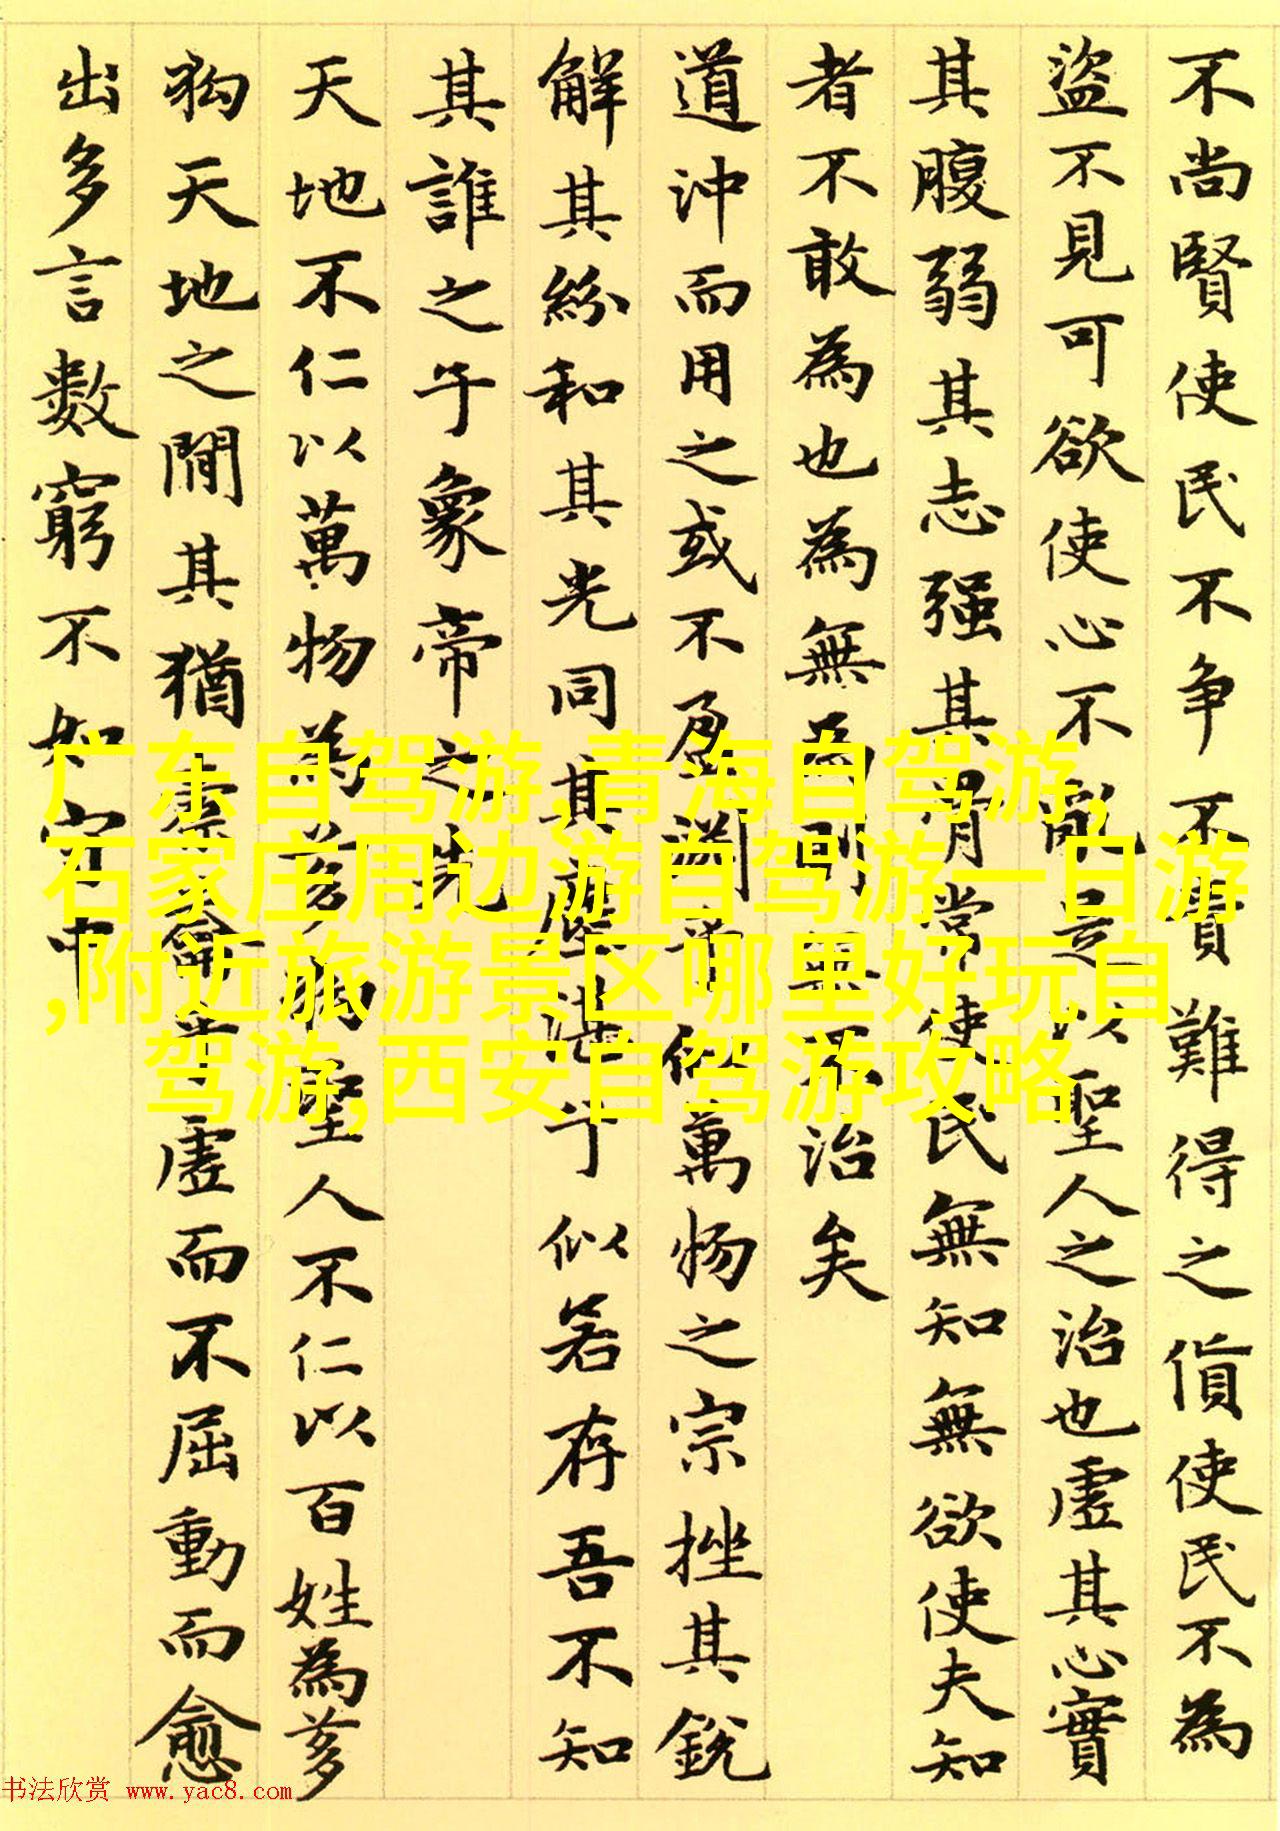 不尚賢使民不争不貴難得之貨使民不為
盜不見可欲使心不亂是以聖人之治也虛其心實
其腹弱其志强其骨常使民無知無欲使夫知
者不敢為也為無為則無不治矣
道沖而用之或不盈淵乎似萬物之宗挫其銳
解其紛和其光同其塵湛乎似若存吾不知
其誰之子象帝之先
天地不仁以萬物為芻狗聖人不仁以百姓為芻
狗天地之間其猶橐龠乎虛而不屈動而愈
出多言數窮不如守中
广东自驾游,青海自驾游,
石家庄周边游自驾游一日游
,附近旅游景区哪里好玩自
驾游,西安自驾游攻略
书法欣赏 www.yac8.com